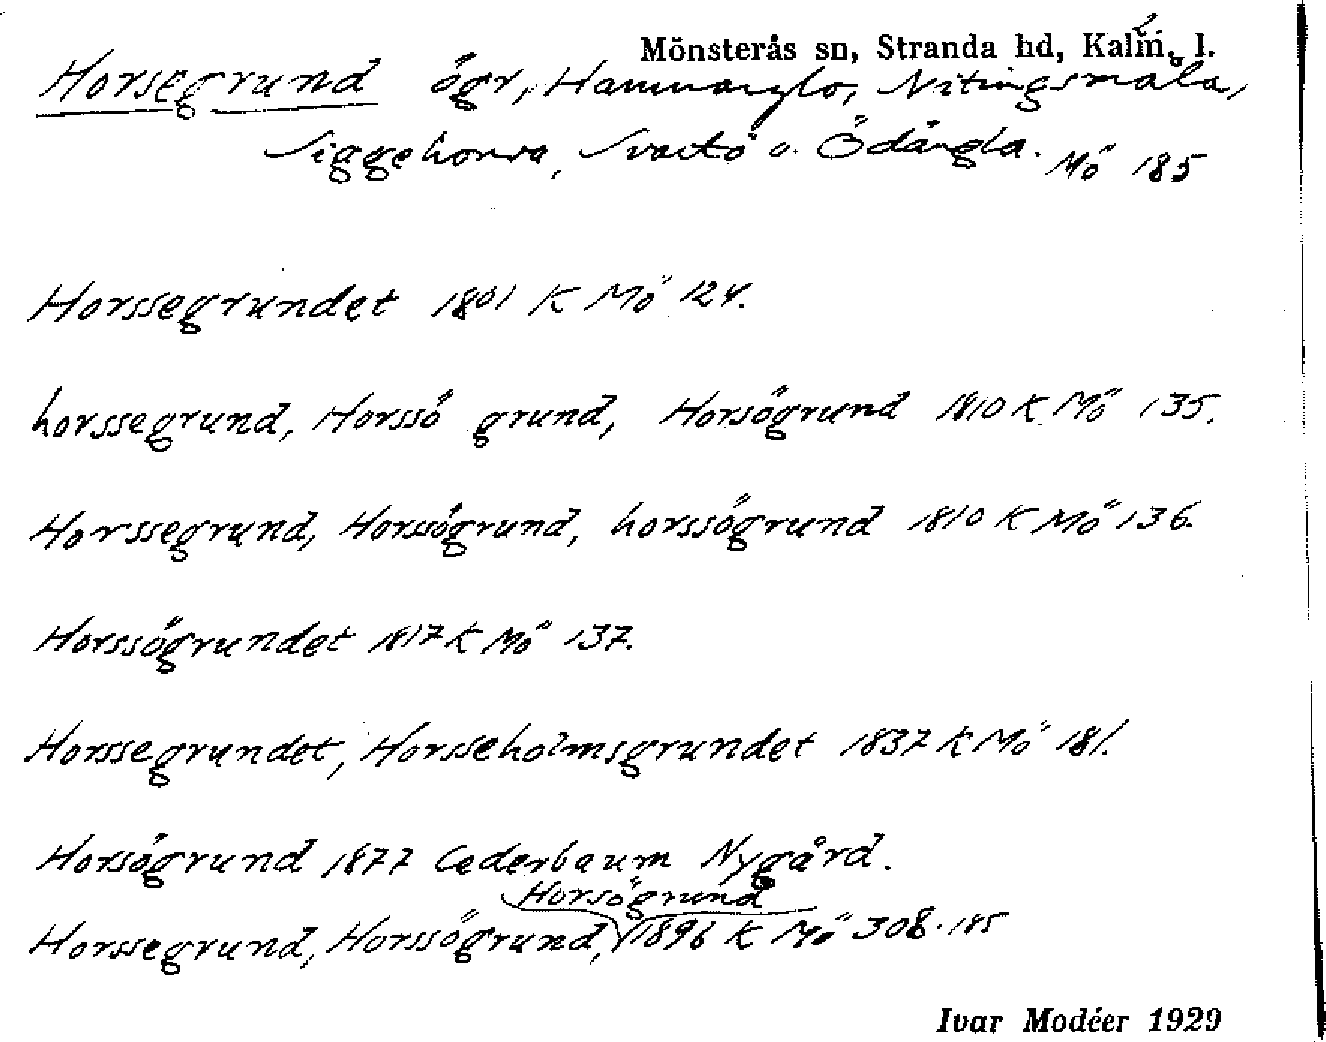 Mönsterås sn, Stranda hd, Kalm. l.
Horsegrund ögr, Hammarglo, Nitingsmåla,
Siggehorva, Svartö o. Ödängla. Mö 185
Horssegrundet 1801 K Mö 124.
horssegrund, Horssö grund, Horsögrund 1810 K Mö 135.
Horssegrund, Horssögrund, horssögrund 1810 K Mö 136.
Horssögrundet 1817 K Mö 137.
Horssegrundet, Horsseholmsgrundet 1837 K Mö 181.
Horsögrund 1877 Cederbaum Nygård.
Horsögrund
Horssegrund, Horssögrund, 1896 K Mö 308. 185
Ivar Modéer 1929